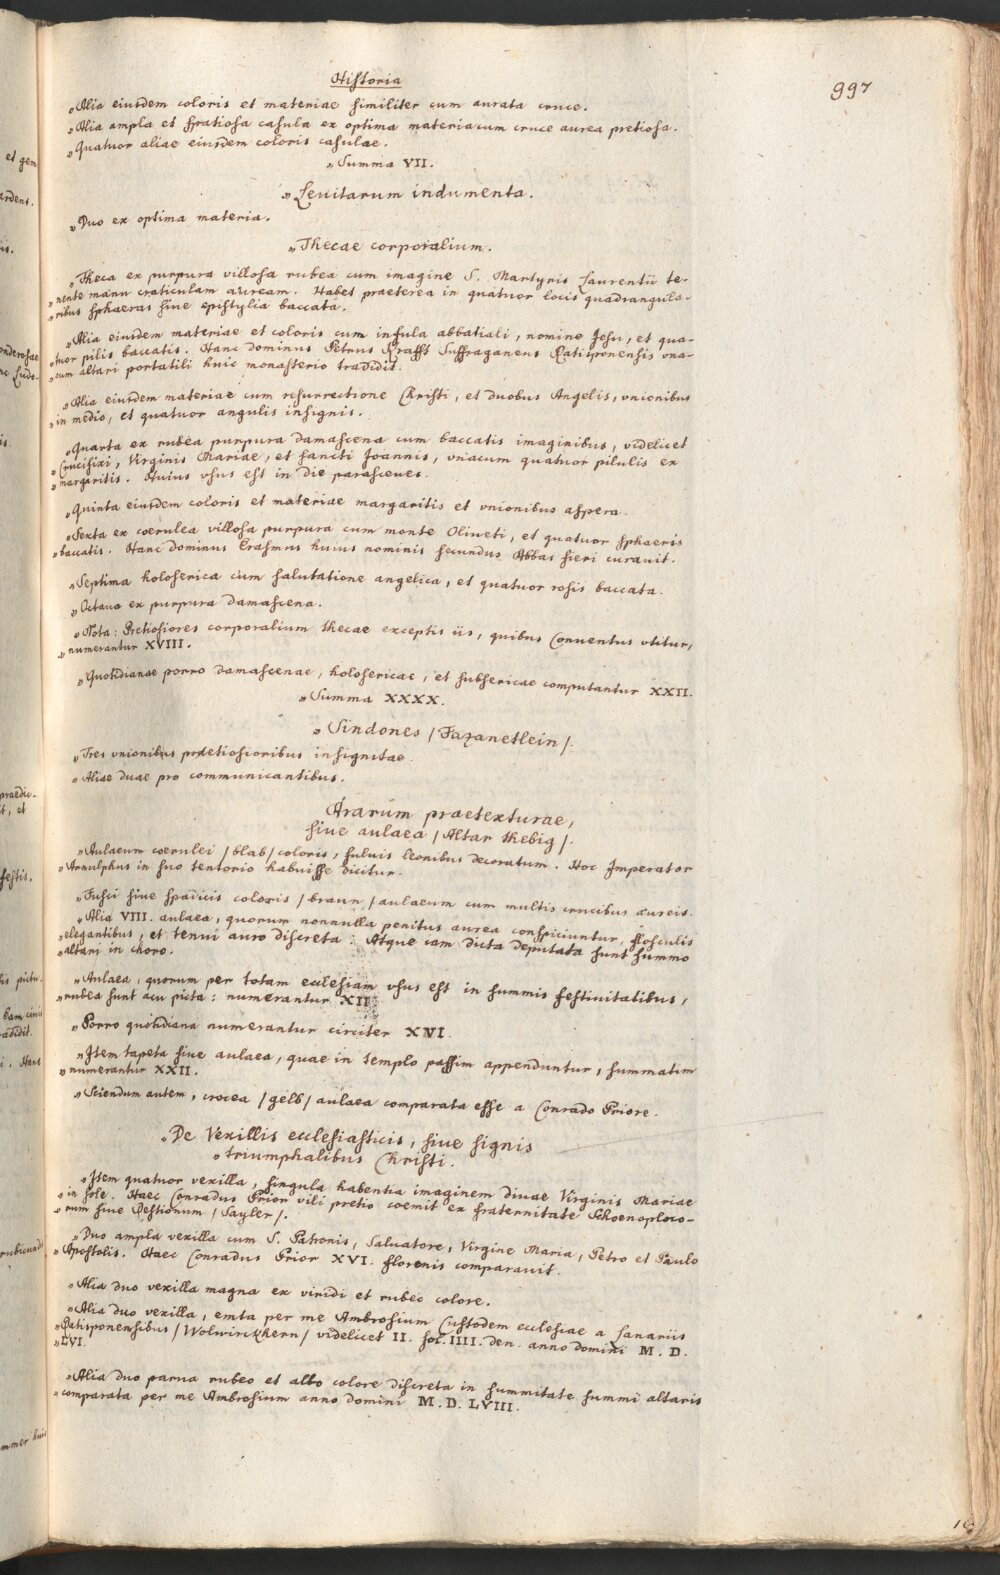 Historia
997
„Alia eiusdem coloris et materiae similiter cum aurata cruce.
„Alia ampla et spatiosa casula ex optima materia cum cruce aurea pretiosa.
„Quatuor aliae eiusdem coloris casulae.
„Summa VII.
„Leuitarum indumenta.
„Duo ex optima materia.
„Thecae corporalium.
„Theca ex purpura villosa rubea cum imagine S. Martyris Laurentii te-
„nente manu craticulam auream. Habet praeterea in quatuor locis quadrangula-
„ribus sphaeras siue epistylia baccata.
„Alia eiusdem materiae et coloris cum infula abbatiali, nomine Jesu, et qua-
„tuor pilis baccatis. Hanc dominus Petrus Krafft Suffraganeus Ratisponensis vna-
„cum altari portatili huic monasterio tradidit.
„Alia eiusdem materiae cum resurrectione Christi, et duobus Angelis, vnionibus
„in medio, et quatuor angulis insignis.
„Quarta ex rubea purpura damascena cum baccatis imaginibus, videlicet
„Crucifixi, Virginis Mariae, et sancti Joannis, vnacum quatuor pilulis ex
„margaritis. Huius vsus est in die parasceues.
„Quinta eiusdem coloris et materiae margaritis et vnionibus aspera.
„Sexta ex coerulea villosa purpura cum monte Oliueti, et quatuor sphaeris
„baccatis. Hanc dominus Erasmus huius nominis secundus Abbas fieri curauit.
„Septima holoserica cum salutatione angelica, et quatuor rosis baccata.
„Octaua ex purpura damascena.
„Nota: Pretiosiores corporalium thecae exceptis iis, quibus Conuentus vtitur,
„numerantur XVIII.
„Quotidianae porro damascenae, holosericae, et subsericae computantur XXII.
„Summa XXXX.
„Sindones / Fazanetlein /.
„Tres vnionibus pretiosioribus insignitae.
„Aliae duae pro communicantibus.
Ararum praetexturae,
siue aulaea / Altar thebig /.
„Aulaeum coerulei / blab / coloris, fuluis leonibus decoratum. Hoc Imperator
„Arnulphus in suo tentorio habuisse dicitur.
„Fusci siue spadicis coloris / braun / aulaeum cum multis crucibus aureis.
„Alia VIII. aulaea, quorum nonnulla penitus aurea conspiciuntur, flosculis
„elegantibus, et tenui auro discreta: Atque iam dicta deputata sunt summo
„altari in choro.
„Aulaea, quorum per totam ecclesiam vsus est in summis festiuitatibus,
„rubea sunt acu picta: numerantur XII.
„Porro quotidiana numerantur circiter XVI.
„Item tapeta siue aulaea, quae in templo passim appenduntur, summatim
„numerantur XXII.
„Sciendum autem, crocea / gelb / aulaea comparata esse a Conrado Priore.
„De Vexillis ecclesiasticis, siue signis
„triumphalibus Christi.
„Item quatuor vexilla, singula habentia imaginem diuae Virginis Mariae
„in sole. Haec Conradus Prior vili pretio coemit ex fraternitate Schoenoploco-
„rum siue Restionum / Sayler /.
„Duo ampla vexilla cum S. Patronis, Saluatore, Virgine Maria, Petro et Paulo
„Apostolis. Haec Conradus Prior XVI. florenis comparauit.
„Alia duo vexilla magna ex viridi et rubeo colore.
„Alia duo vexilla, emta per me Ambrosium Custodem ecclesiae a Lanariis
„Ratisponensibus / Wolwirckhern / videlicet II. sol. IIII. den. anno domini M. D.
„LVI.
„Alia duo parua rubeo et albo colore discreta in summitate summi altaris
„comparata per me Ambrosium anno domini M. D. LVIII.